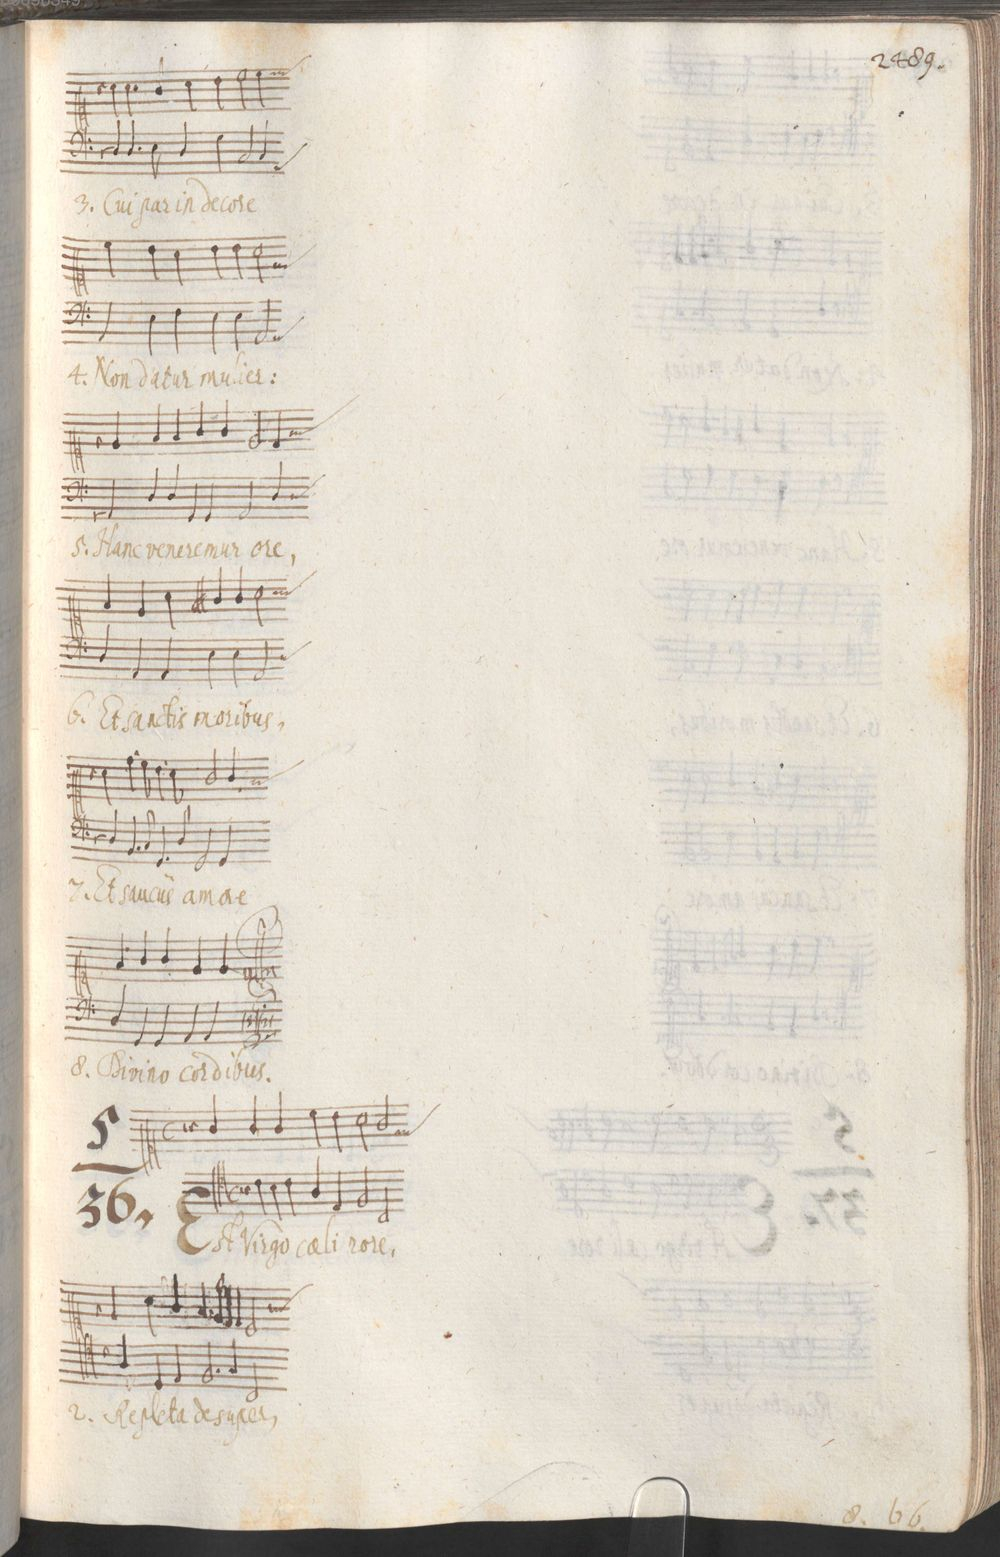 2489.
3. Cui par in decore
4. Non datur mulier:
5. Hanc veneremur ore,
6. Et sanctis moribus,
7. Et sauciis amore
8. Divino cordibus.
5
36,
Est Virgo cæli rore,
2. Repleta desuper,
8. 66.